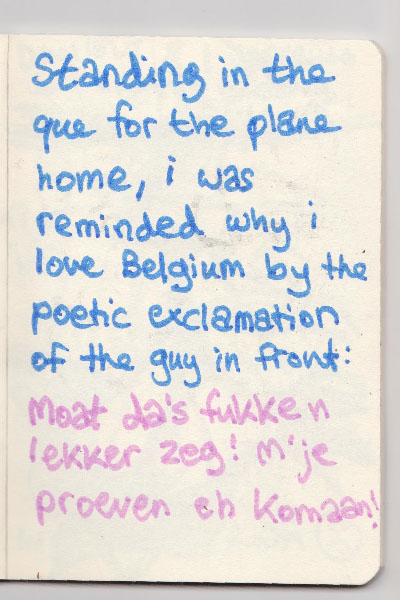 Standing in the
que for the plane
home, i was
reminded why i
love Belgium by the
poetic exclamation
of the guy in front:
Moat da's fukken
lekker zeg! M'je
proeven eh Komaan!